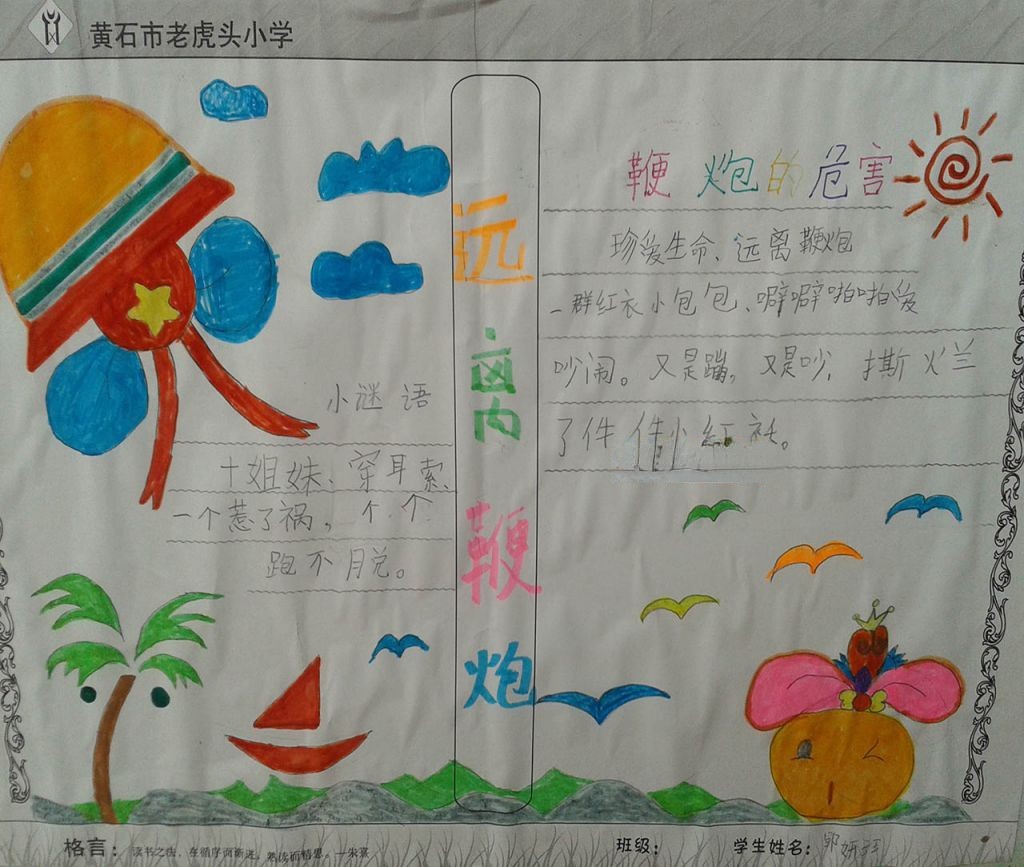 黄石市老虎头小学
远离鞭炮
小谜语
十姐妹、穿耳索、
一个惹了祸，个个
跑不脱。
鞭炮的危害
珍爱生命、远离鞭炮
一群红衣小包包、噼噼啪啪爱
吵闹。又是蹦，又是吵，撕火兰
了件件小红袄。
格言：读书之法，在循序而渐进，熟读而精思。—朱熹
班级：
学生姓名：郭妍